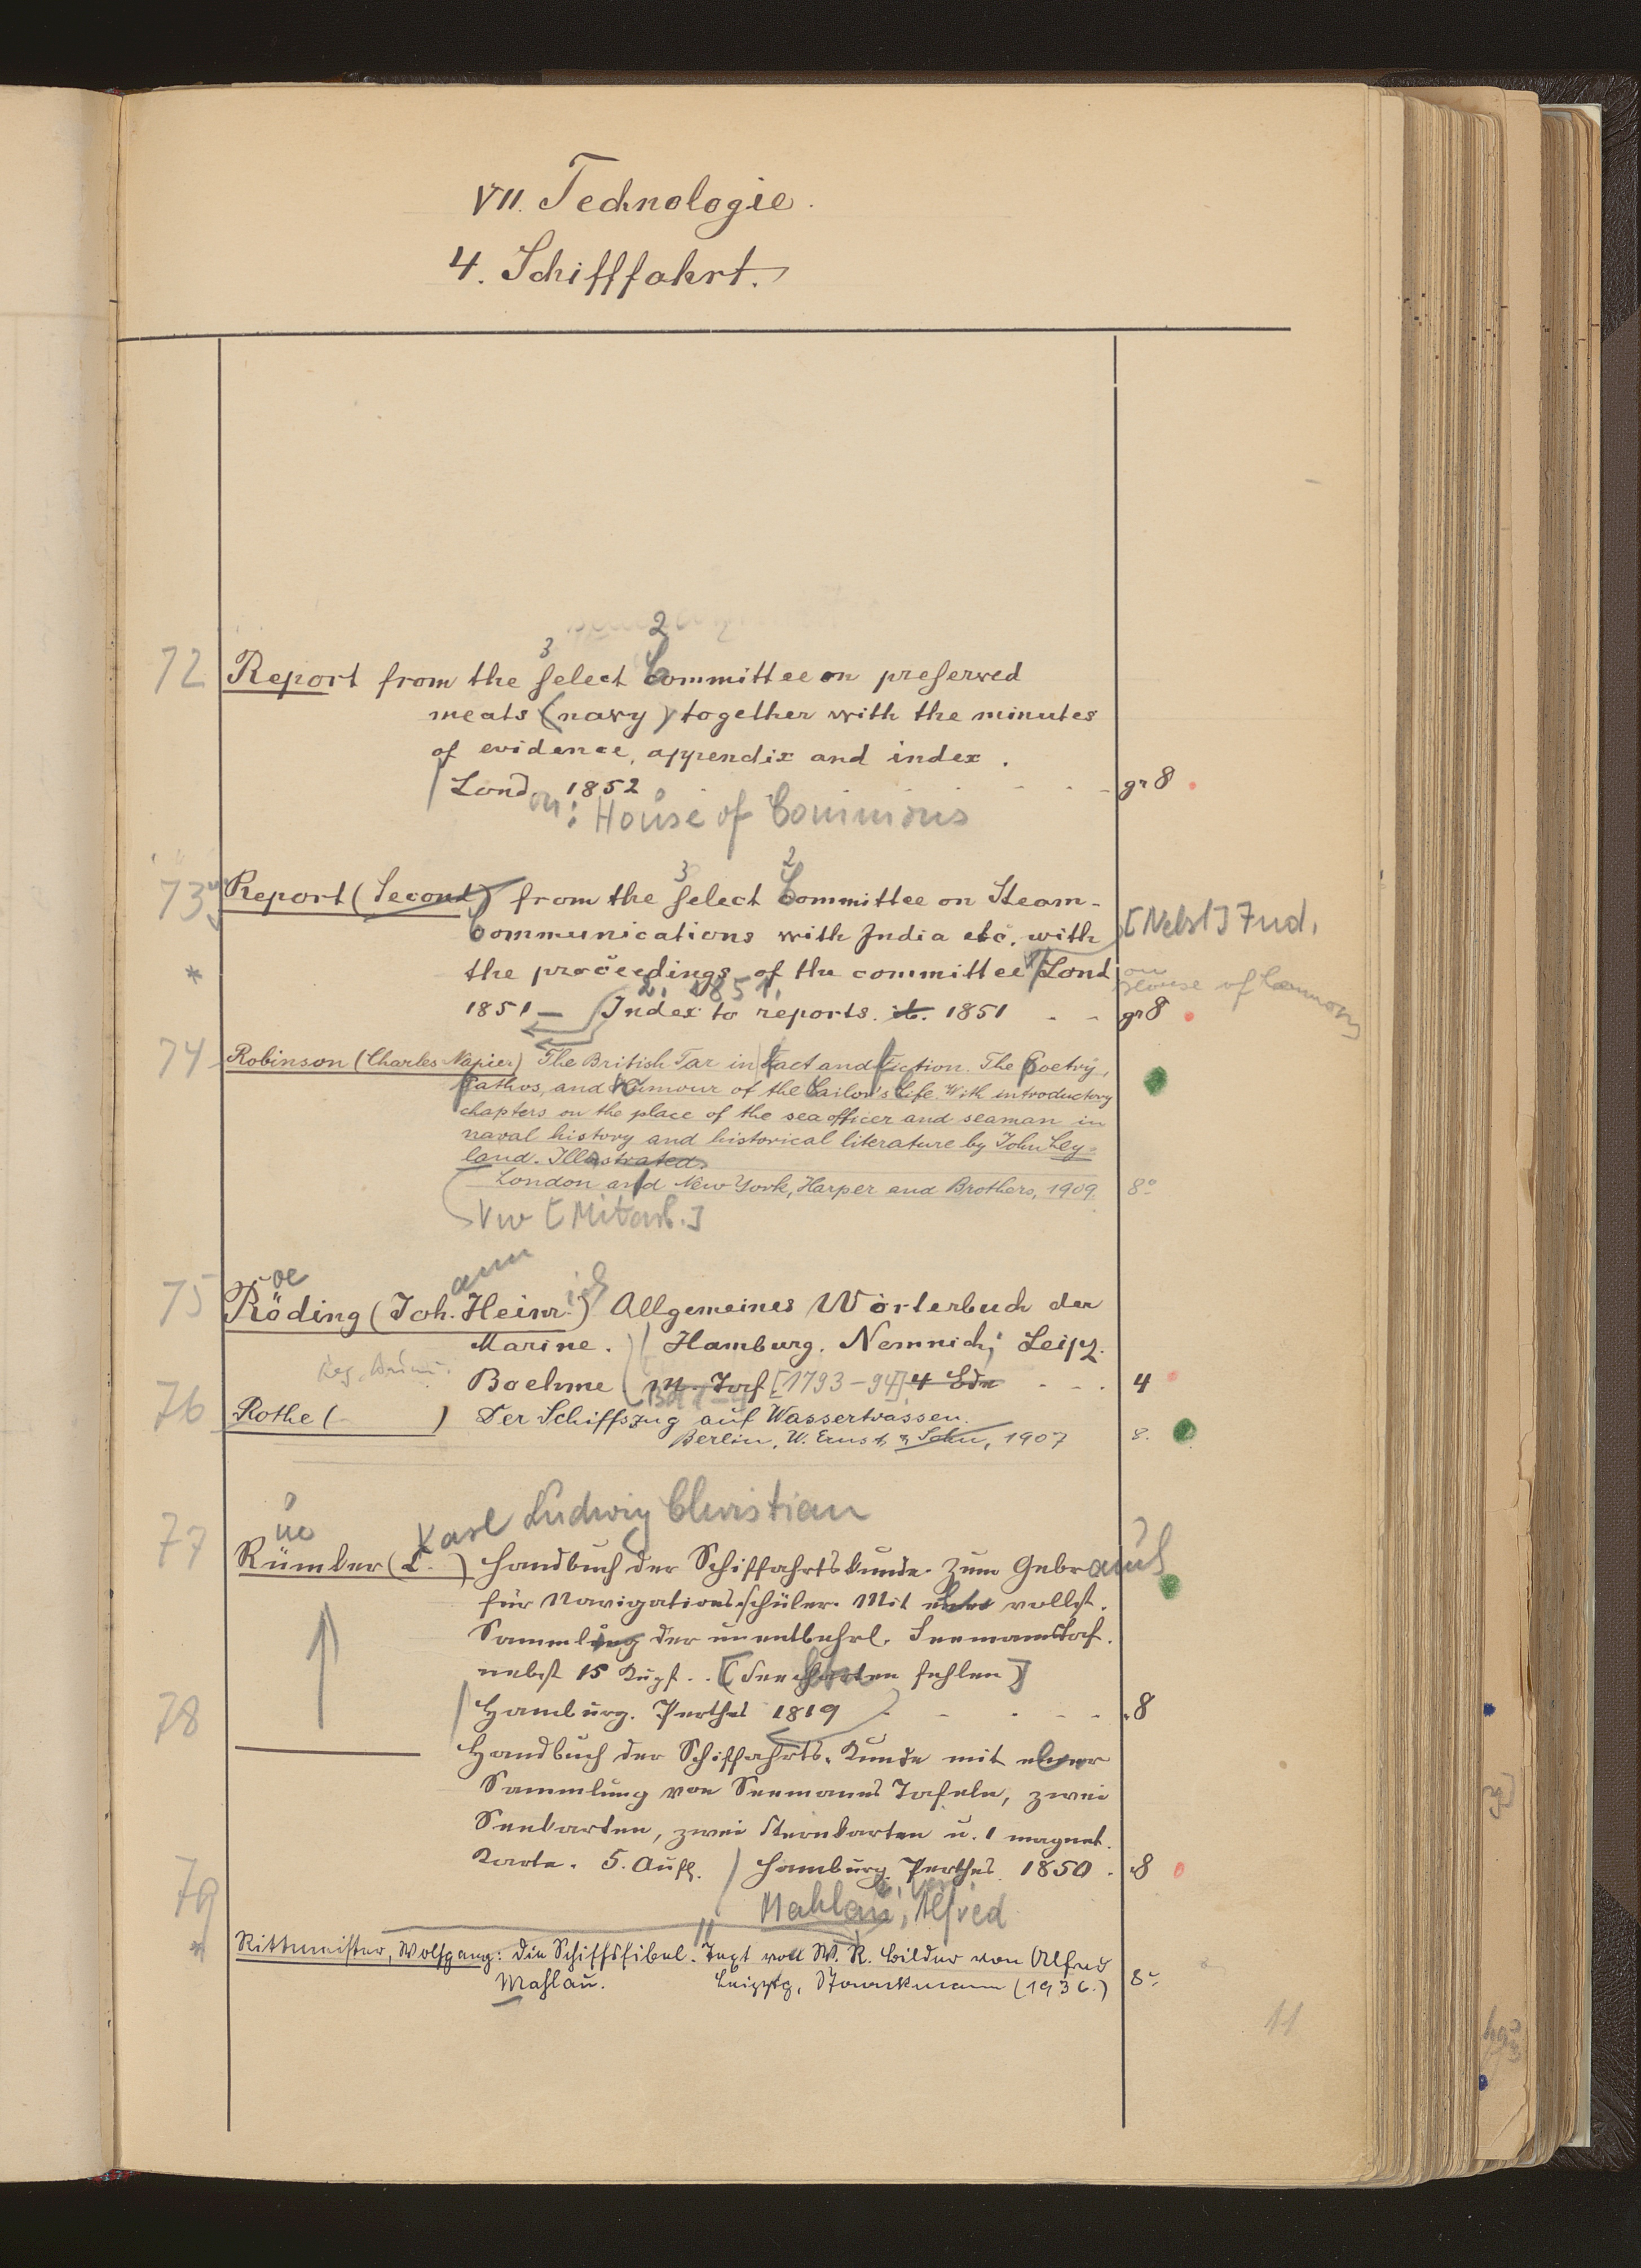 VII. Technologie.
4. Schifffahrt.
2
3
72 Report from the select Committee on preserved
meats (navy) together with the minutes
of evidence, appendix and index.
London 1852 - - gr 8
: House of Commons
3 2
73 Report (Second) from the select Committee on Steam-
Communications with India etc. with [Nebst] Ind.
* the proceedings of the committee Lond on House of Commons
2. 1851.
1851 — Index to reports. ib. 1851 - - gr 8
74 Robinson (Charles Napier) The British Tar in fact and fiction. The poetry,
pathos, and humour of the sailor's life. With introductory
chapters on the place of the sea officer and seaman in
naval history and historical literature by John Ley=
land. Illustrated.
London and New York, Harper and Brothers, 1909. 8°
Vw [Mitarb.]
oe ann ich
75 Röding (Joh. Heinr.) Allgemeines Wörterbuch der
Marine. Hamburg. Nemnich; Leipz.
Boehme m. Taf [1793-94] 4 Bde - - . 4
Bd 1-4
76 Rothe ( ) Der Schiffszug auf Wasserstrassen.
Berlin, W. Ernst & Sohn, 1907 8.
Karl Ludwig Christian
ue
77 Rümker (L. ) Handbuch der Schiffahrtskunde. Zum Gebrauch
für Navigations-schüler. Mit einer vollst.
Sammlung der unentbehrl. Seemannstaf.
nebst 15 Kupf. . [(Seekarten fehlen)]
Hamburg. Perthes 1819 . - . - - 8
78
Handbuch der Schiffahrts-Kunde mit einer
Sammlung von Seemanns Tafeln, zwei
Seekarten, zwei Sternkarten u. 1 magnet.
Karte. 5. Aufl. Hamburg. Perthes. 1850. 8
79
Mahlau, Alfred
* Rittmeister, Wolfgang: Die Schiffsfibel. Text von W. R. Bilder von Alfred
Mahlau. Leipzig, (1936.) 8°
11